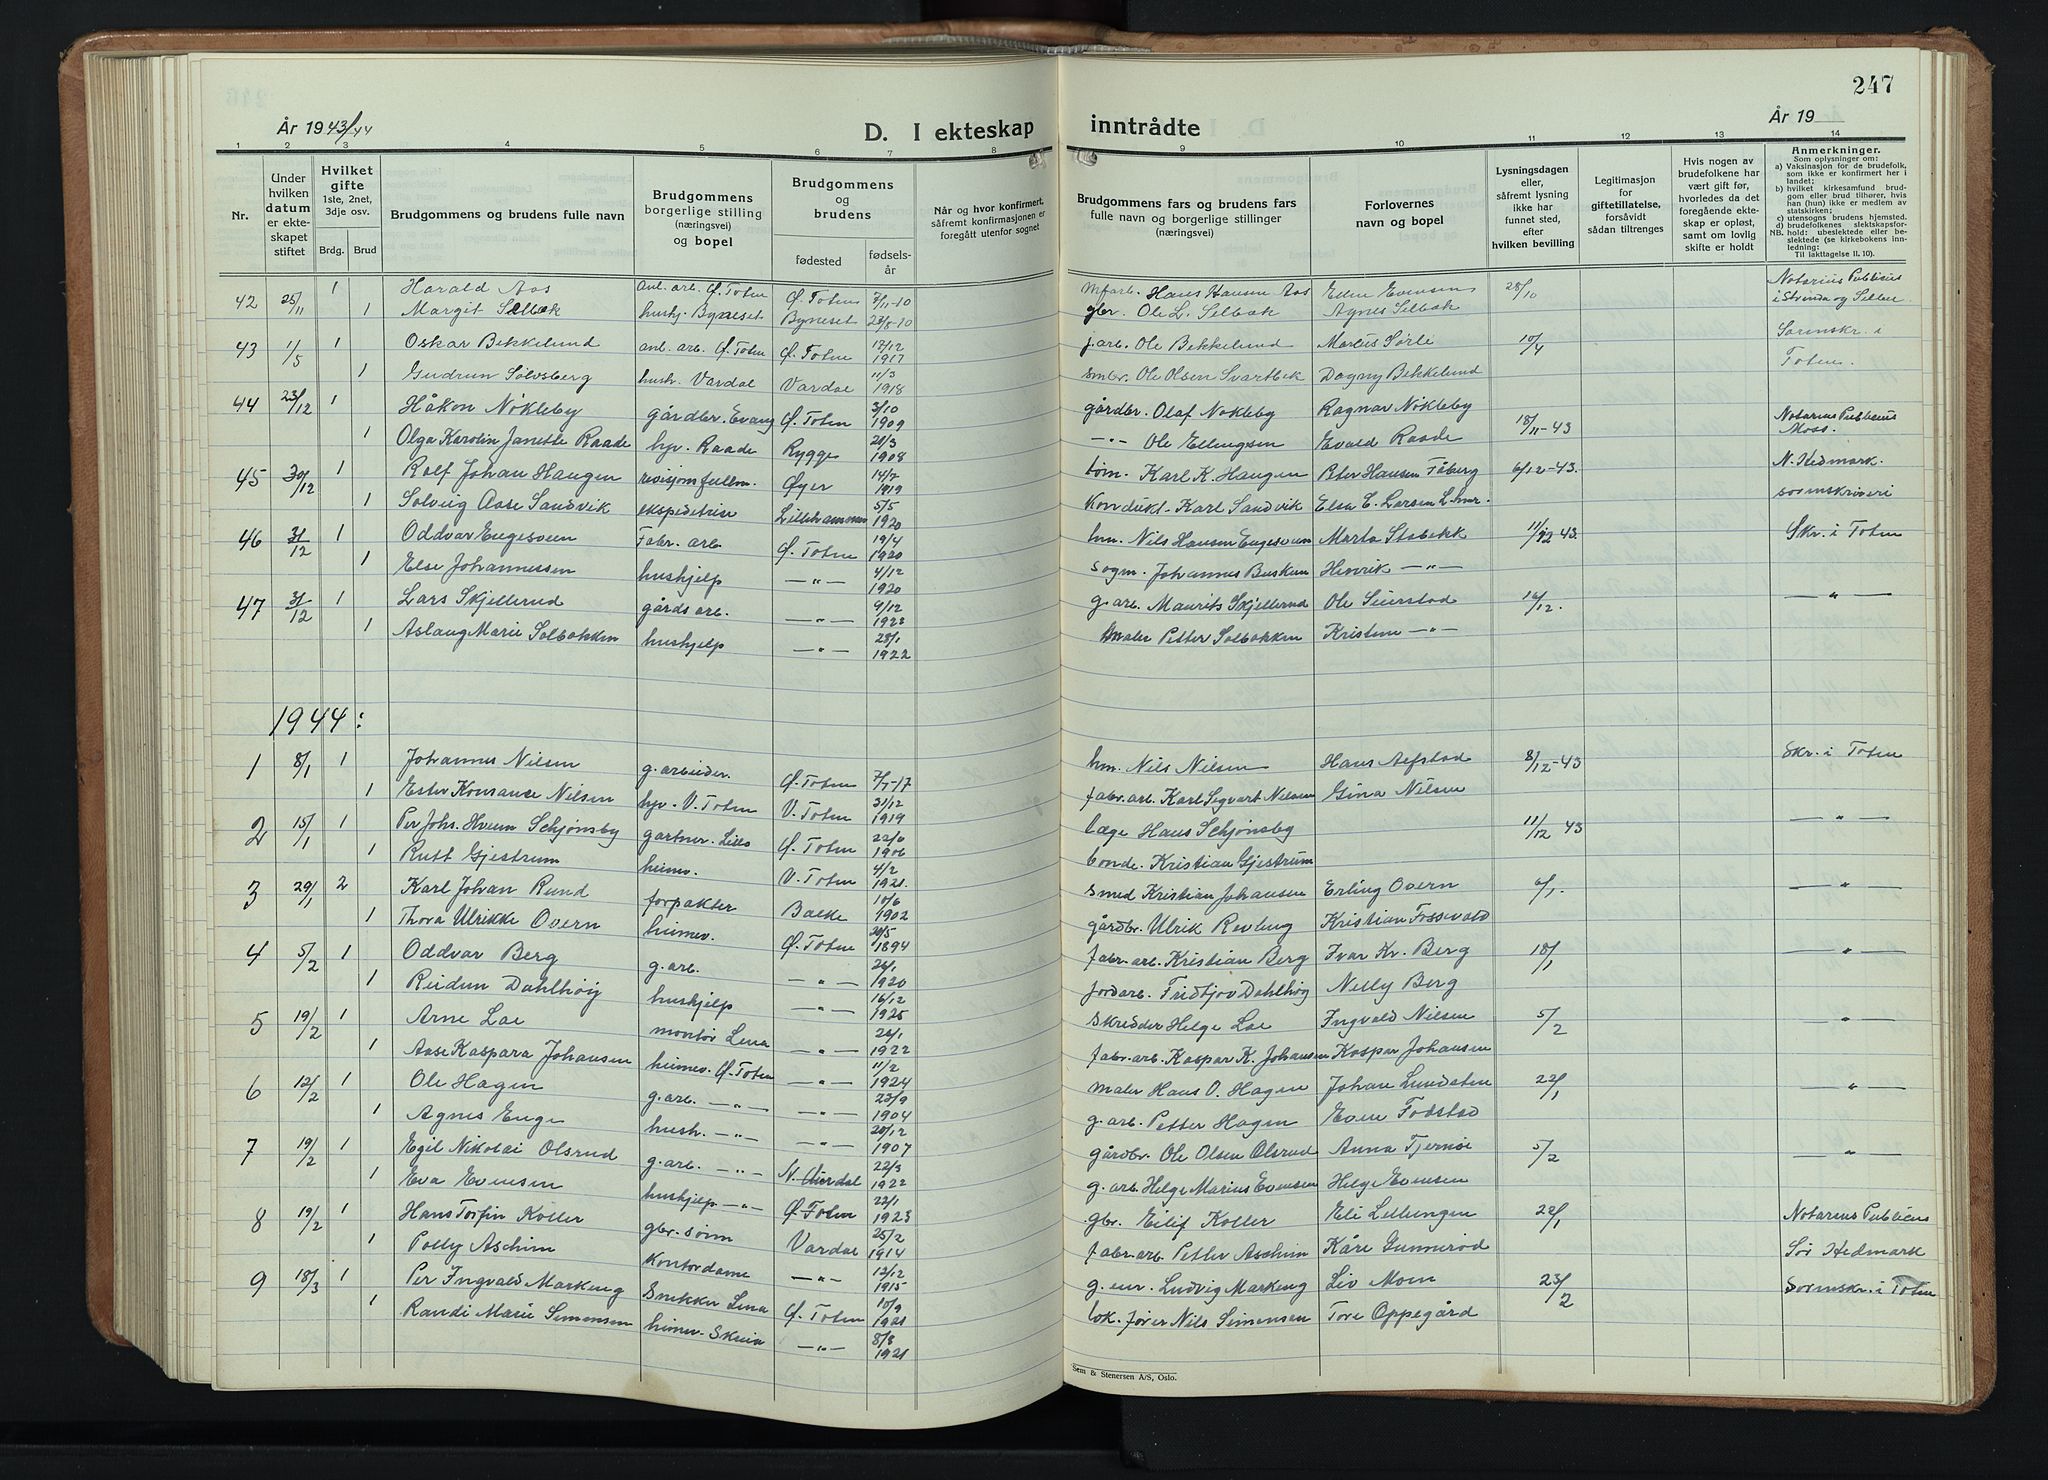 247
År 1943/44
D. I ekteskap inntrådte
År 19
1 2 3 4 5 6 7 8 9 10 11 12 13 14
Nr.
Under hvilken datum er ekteskapet stiftet
Hvilket gifte 1ste, 2net, 3dje osv.
Brdg. Brud
Brudgommens og brudens fulle navn
Brudgommens borgerlige stilling (næringsvei) og bopel
Brudgommens og brudens
fødested
fødselsår
Når og hvor konfirmert, såfremt konfirmasjonen er foregått utenfor sognet
Brudgommens fars og brudens fars fulle navn og borgerlige stillinger (næringsvei)
Forlovernes navn og bopel
Lysningsdagen eller, såfremt lysning ikke har funnet sted, efter hvilken bevilling
Legitimasjon for giftetillatelse, forsåvidt sådan tiltrenges
Hvis nogen av brudefolkene har vært gift før, hvorledes da det foregående ekteskap er opløst, samt om lovlig skifte er holdt
Anmerkninger.
Som oplysninger om:
a) Vaksinasjon for de brudefolk, som ikke er konfirmert her i landet;
b) hvilket kirkesamfund brudgom eller brud tilhører, hvis han (hun) ikke er medlem av statskirken;
c) utensogns brudens hjemsted.
d) brudefolkenes slektskapsforhold: ubeslektede eller beslektede (se kirkebokens innledning:
NB. Til iakttagelse II. 10).
42 25/11 1 Harald Aas anl. arb. Ø. Toten Ø. Toten 7/11-10 Hans Hansen Aas Evensen 28/10 Notarius Publicus
1 Margit Selbak hushj. Byneset Byneset 23/8-10 gbr. Ole L. Selbak Agnes Selbak i Strinda og Selbu
43 1/5 1 Oskar Bekkelund anl. arb. Ø. Toten Ø. Toten 13/12 1917 j. arb. Ole Bekkelund Marius Sørli 10/4 Sorenskr. i
1 Gudrun Sølvsberg hush. Vardal Vardal 11/3 1918 smbr. Ole Olsen Svartbek Dagny Bekkelund Toten.
44 23/12 1 Håkon Nøkleby gårdbr. Evang Ø. Toten 3/10 1909 gårdbr. Olaf Nøkleby Ragnar Nøkleby 18/11-43 Notarius Publicus
1 Olga Karolin Janette Raade hpv. Raade Rygge 21/3 1908 —"— Ole Ellingsen Evald Raade Moss.
45 30/12 1 Rolf Johan Haugen revisjonsfullm. Øyer 14/7 1919 tøm. Karl K. Haugen Peter Hansen Fåberg 6/12-43. N. Hedmark.
1 Solveig Aase Sandvik ekspeditrise Lillehammer 5/5 1920 Kondukt. Karl Sandvik Elsa E. Larsen L.hmr. sorenskriveri
46 31/12 1 Oddvar Engesveen Fabr. arb. Ø. Toten 19/4 1920 hm. Nils Hansen Engesveen Marta Stabekk 11/12-43. Skr. i Toten
1 Else Johannessen hushjelp —"— 4/12 1920 sagm. Johannes Buskum Henrik —"—
47 31/12 1 Lars Skjellerud gårdsarb. —"— 9/12 1922 g. arb. Maurits Skjellerud Ole Seierstad 16/12. —"—
1 Aslaug Marie Solbakken hushjelp —"— 23/1 1922 Maler Petter Solbakken Kristine —"—
1944:
1 8/1 1 Johannes Nilsen g. arbeider. Ø. Toten 7/7-17 hm. Nils Nilsen Hans Aefstad 8/12-43 Skr. i Toten
1 Ester Konstance Nilsen hpv. V. Toten V. Toten 31/12 1919 fabr. arb. Karl Sigvart Nilsen Gina Nilsen
2 15/1 1 Per Johs. Hveem Schjønsby gartner. Ø. Toten 22/6 1906 læge Hans Schjønsby 11/12 43 —"—
1 Rutt Gjestrum heimev. V. Toten 4/2 1921. bonde. Kristian Gjestrum
3 29/1 2 Karl Johan Rund forpakter Balke 10/6 1902 smed Kristian Johansen Erling Overn 6/1. —"—
1 Thora Ulrikke Overn heimev. Ø. Toten 20/5 1894 gårdbr. Ulrik Revling Kristian Fossvold
4 5/2 1 Oddvar Berg g. arb. —"— 26/1 1920 fabr. arb. Kristian Berg Ivar Kr. Berg 18/1 —"—
1 Reidun Dahlhøig hushjelp —"— 16/12 1925 jordarb. Fridtjov Dahlhøg Nelly Berg
5 19/2 1 Arne Loe montør Lena —"— 26/1 1922 Skredder Helge Loe Ingvald Nilsen 5/2 —"—
1 Aase Kaspara Johansen heimev. Ø. Toten —"— 11/2 1924 fabr. arb. Kaspar K. Johansen Kaspar Johansen
6 12/2 1 Ole Hagen g. arb. —"— —"— 23/9 1904 maler Hans O. Hagen Johan Lundsten 22/1 —"—
1 Agnes Enge hush. —"— —"— 20/12 1907 g. arb. Petter Hagen Even Fodstad
7 19/2 1 Egil Nikolai Olsrud g. arb. —"— N. Aurdal 22/3 1922 gårdbr. Ole Olsen Olsrud Anna Tjernøe 5/2 —"—
1 Eva Evensen hushjelp —"— Ø. Toten 22/1 1923 g. arb. Helge Marius Evensen Helge Evensen
8 19/2 1 Hans Torfin Koller gbr. sønn Vardal 25/2 1914 gbr. Eilif Koller Eli Lillingen 22/1 Notarius Publicus
1 Polly Aschim Kontordame —"— 12/12 1915 fabr. arb. Petter Aschim Kåre Gunnerød Sør Hedmark
9 18/3 1 Per Ingvald Markeng Snekker Lena Ø. Toten 10/9 1921 g. eier. Ludvig Markeng Liv Moen 23/2 Sorenskr. i Toten
1 Randi Marie Simensen heimev. Skreia —"— 8/8 1921 lok. fører Nils Simensen Tore Oppegård
Sem & Stenersen A/S, Oslo.